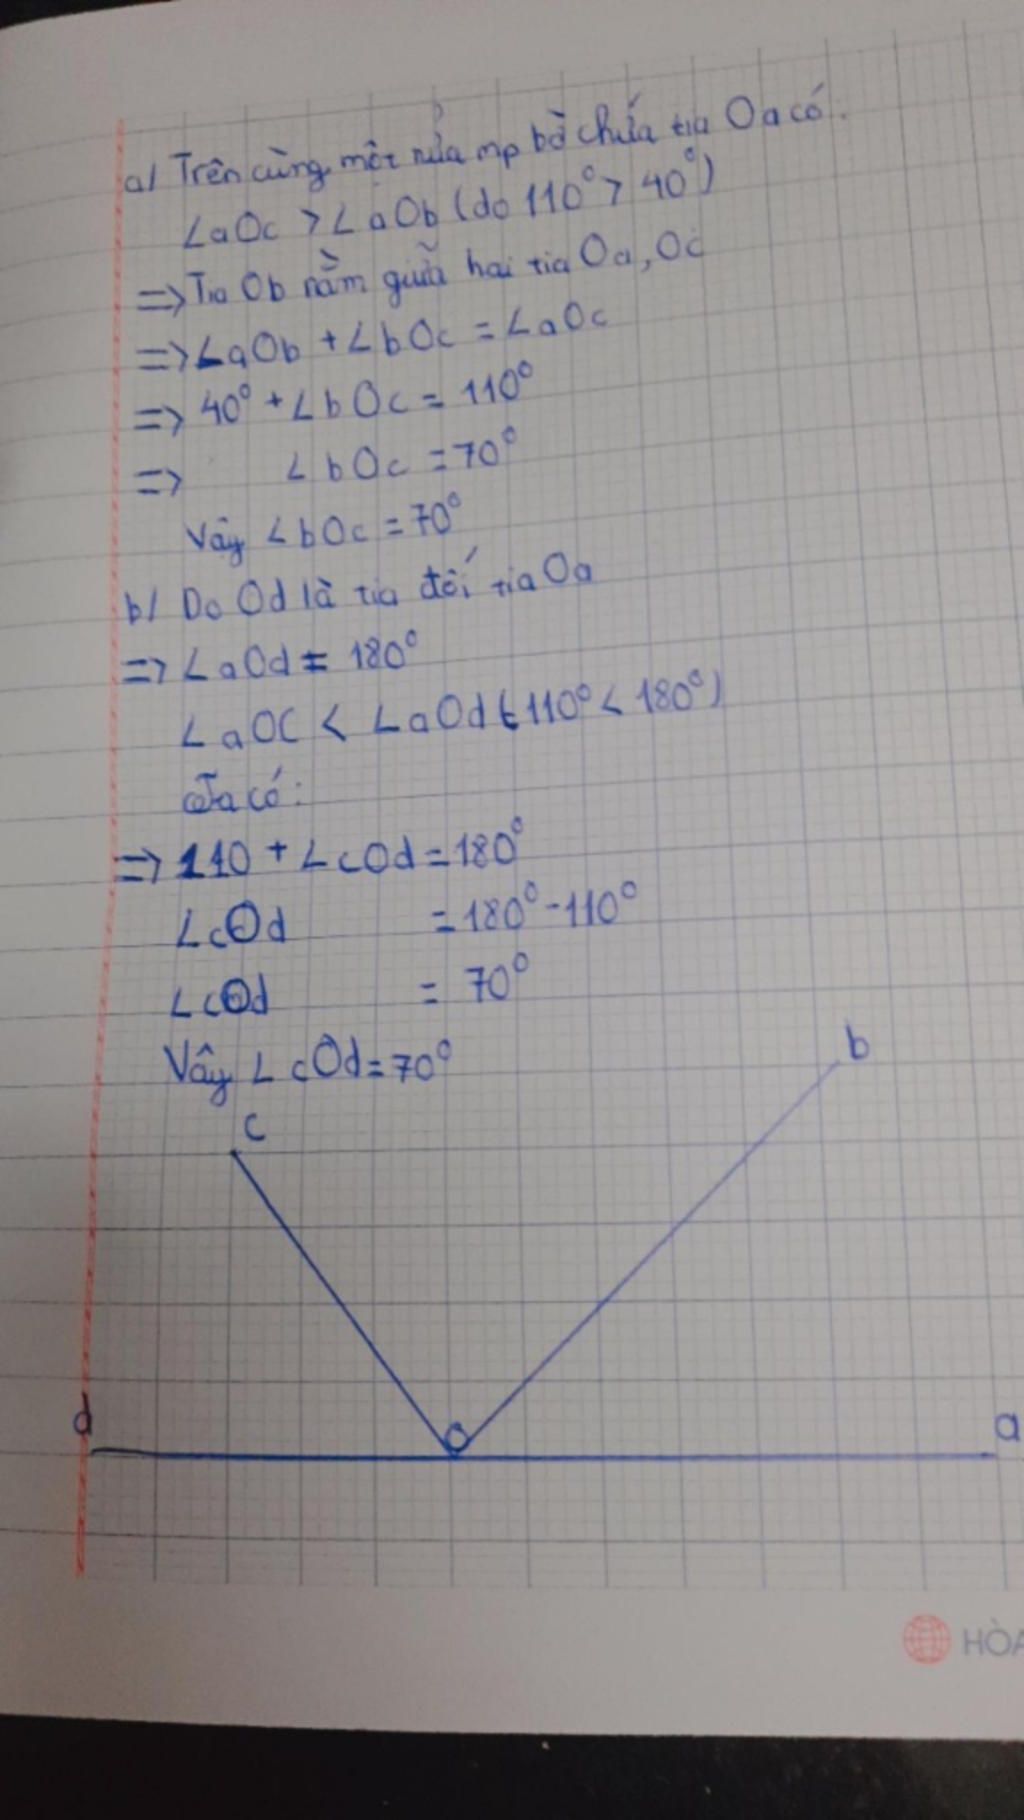 a/ Trên cùng một nửa mp bờ chứa tia Oa có.
∠aOc > ∠aOb (do 110° > 40°)
=> Tia Ob nằm giữa hai tia Oa, Oc
=> ∠aOb + ∠bOc = ∠aOc
=> 40° + ∠bOc = 110°
=> ∠bOc = 70°
Vậy ∠bOc = 70°
b/ Do Od là tia đối tia Oa
=> ∠aOd = 180°
∠aOC < ∠aOd (110° < 180°)
Ta có:
=> 110 + ∠cOd = 180°
∠cOd = 180° - 110°
∠cOd = 70°
Vậy ∠cOd = 70°
b
c
d
O
a
HÒA